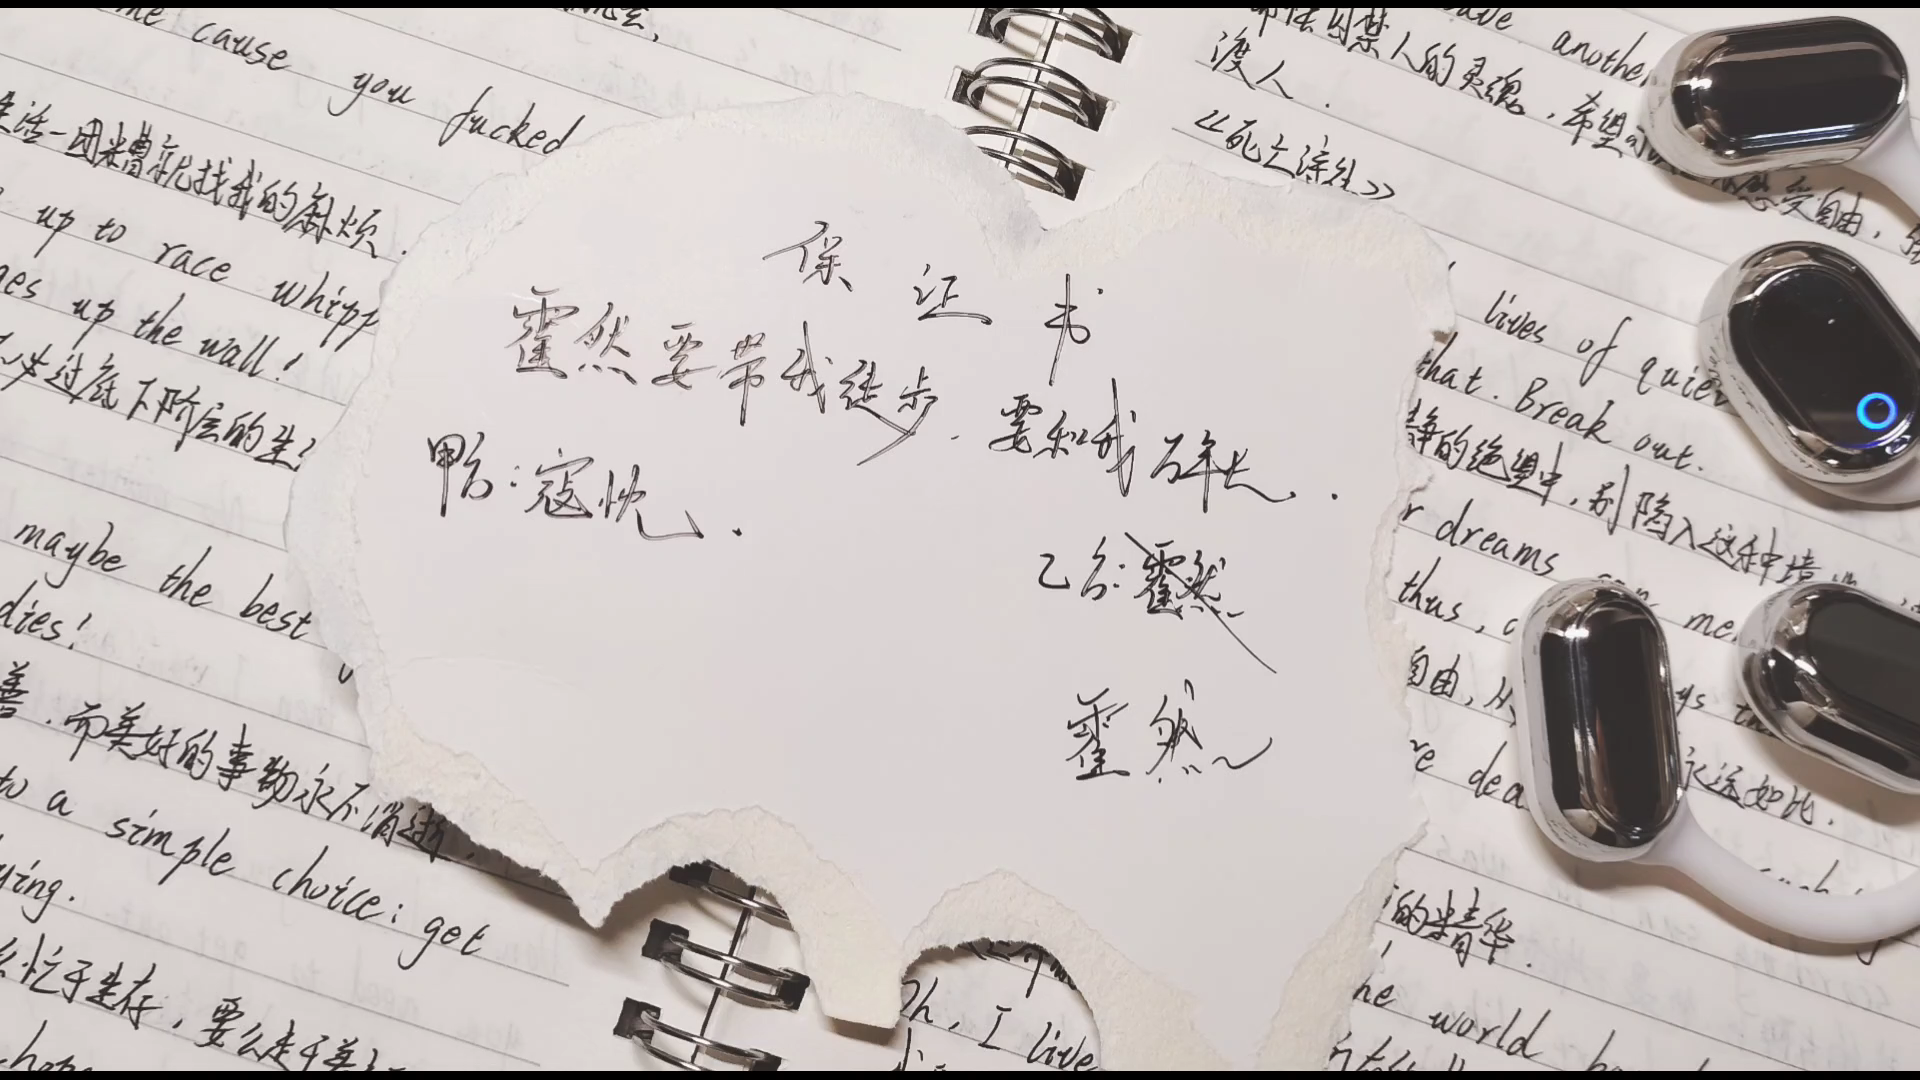 me cause you fucked
生活一团糟就找我的麻烦.
up to race whipp
ges up the wall!
过底下阶层的生
maybe the best
dies!
善.而美好的事物永不消逝.
a simple choice: get
ying.
忙于生存,要么
hope
保证书
霍然要带我徒步.要和我
甲方:寇忱.
乙方:霍然
霍然
another
囚禁人的灵魂,希望
渡人.
《死亡诗社》
感受自由,
lives of quie
that. Break out.
静的绝望中,别陷入这种境
r dreams can me
thus,
自由,
ys th
ve dea
永远如此.
的精华.
he world
Oh, I live